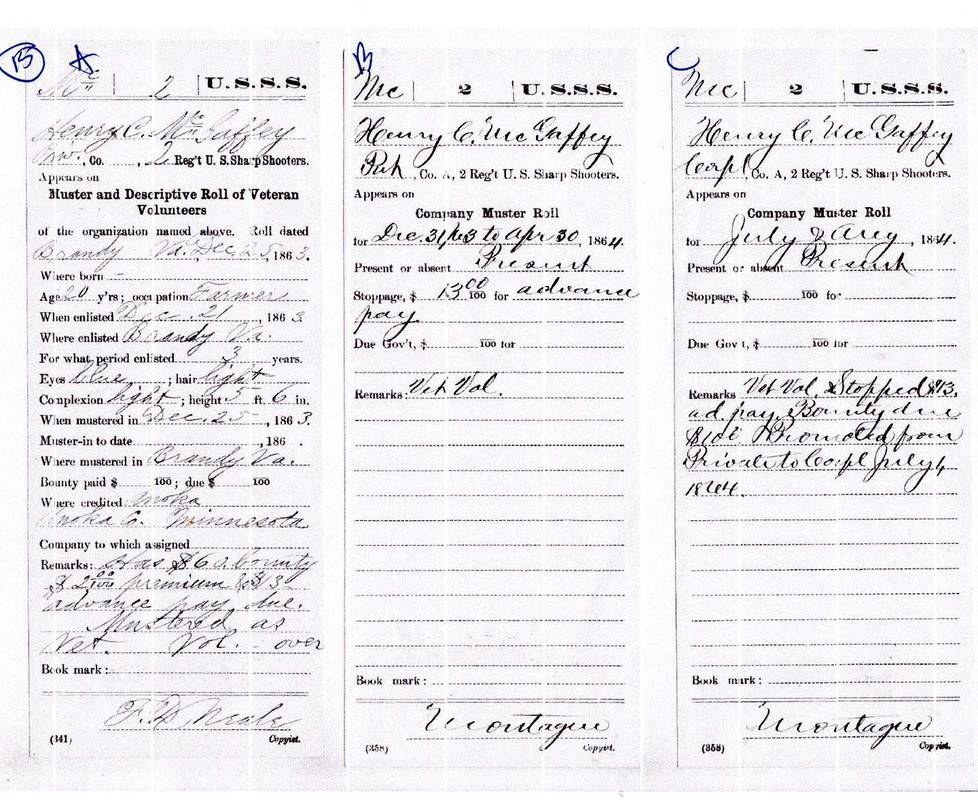 B A
Mc | 2 | U.S.S.S.
Henry C. McGaffey
Priv., Co. , 2 Reg't U. S. Sharp Shooters.
Appears on
Muster and Descriptive Roll of Veteran
Volunteers
of the organization named above. Roll dated
Brandy Va. Dec 25, 1863.
Where born -
Age 20 y'rs; occupation Farmer
When enlisted Dec. 21, 1863
Where enlisted Brandy Va.
For what period enlisted 3 years.
Eyes blue; hair light
Complexion light; height 5 ft. 6 in.
When mustered in Dec. 25, 1863.
Muster-in to date , 186 .
Where mustered in Brandy Va.
Bounty paid $ 100; due $ 100
Where credited Anoka
Anoka Co. Minnesota
Company to which assigned
Remarks: Has $60 bounty
$2 00/100 premium & $13
advance pay due.
Mustered as
Vet. Vol. - over
Book mark:
F. D. Neale
(341) Copyist.
B
Mc | 2 | U.S.S.S.
Henry C. McGaffey
Pvt, Co. A, 2 Reg't U. S. Sharp Shooters.
Appears on
Company Muster Roll
for Dec. 31/63 to Apr 30, 1864.
Present or absent Present
Stoppage, $ 13 00/100 for advance
pay
Due Gov't, $ 100 for
Remarks: Vet Vol.
Book mark:
Montague
(358) Copyist.
C
Mc | 2 | U.S.S.S.
Henry C. McGaffey
Corpl, Co. A, 2 Reg't U. S. Sharp Shooters.
Appears on
Company Muster Roll
for July & Aug, 1864.
Present or absent Present
Stoppage, $ 100 for
Due Gov't, $ 100 for
Remarks: Vet Vol. Stopped $13,
ad. pay. Bounty due
Promoted from
Private to Corpl July 1,
1864.
Book mark:
Montague
(358) Copyist.